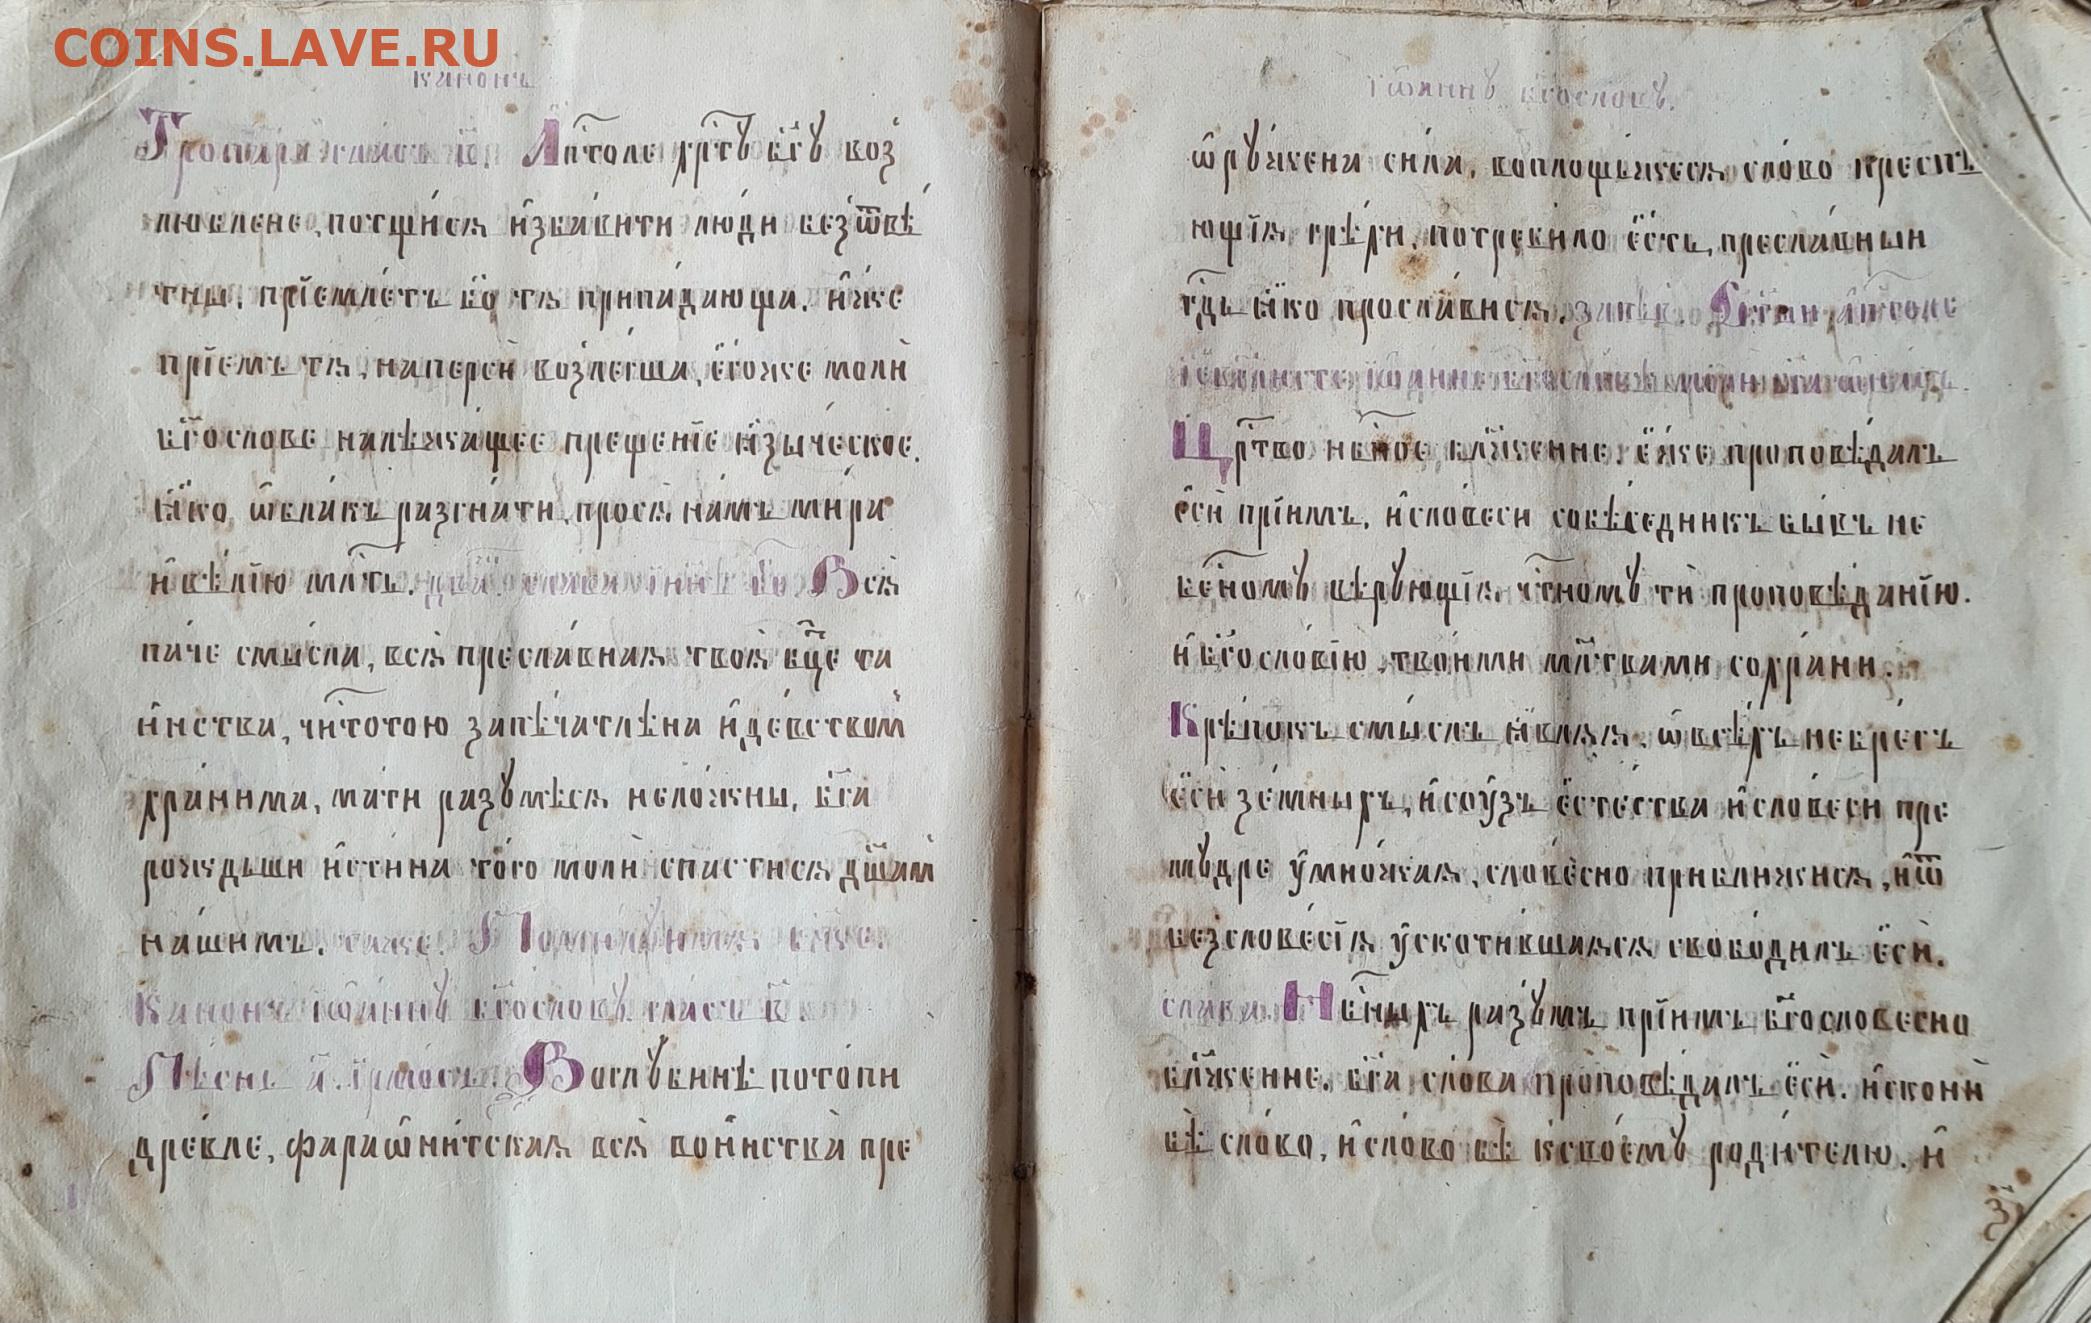 COINS.LAVE.RU
канонъ
Тропарь гласъ в҃. Ап҃столе хр҃тꙋ бг҃ꙋ воз
люблене, потщи́ся и҆зба́вити лю́ди безѿвѣ́
тны. прїе́млетъ бо тя припа́дающа. и҆́же
прїе́мъ тя, наперси̑ возле́гша, є҆го́же моли̑
бг҃ослове належа́щее преще́нїе ꙗ҆зы́ческое.
ꙗ҆́ко ѡ҆́блакъ разгна́ти, прося̀ на́мъ ми́ра
и҆ ве́лїю мл҃ть. два. слава и нн҃ѣ бо Вся̑
па́че смы́сла, вся̑ пресла́вная твоя̑ бц҃е та
и҆нства, чи҃тотою запеча́тлѣна и҆ де́вством
храни́ма, ма́ти разꙋмѣ́ся нело́жны, бг҃а
рождьши и҆́стинна того̀ моли̑ спасти́ся дш҃ам
на́шимъ. таже. Поми́лꙋй мя бж҃е.
Канонъ і҆ѡа́ннꙋ бг҃осло́вꙋ. гла́съ в҃
Пѣ́снь а҃. і҆рмо́съ. Воглꙋбинѣ̀ пото́пи
дре́вле, фараѡ҆ни́тская вся̑ вои́нства̀ пре
і҆ѡаннꙋ бг҃ословꙋ.
ѡ҆рꙋ́жена си́ла, воплощьжеся сло́во преспѣ
ющїя грѣ́хи, потреби́ло є҆́сть, пресла́вныи
гд҃ь ꙗ҆́ко просла́вися. запѣ́в. Свѧты́и а҆п҃столе
Цр҃тво нб҃ное бл҃женне. є҆́же проповѣ́далъ
є҆сѝ прїи́мъ, и҆ словесѝ собѣсе́дникъ бы́въ не
бе҃номꙋ вѣ́рꙋющїя. ч҃тномꙋ ти̑ проповѣ́данїю.
и҆ бг҃осло́вїю твои́ми мл҃твами сохра́ни.
Крѣ́покъ смы́слъ ꙗ҆вля́я. ѡ҆ всѣ́хъ небре́гъ
є҆сѝ зе́мныхъ, и҆ соꙋ́зъ є҆стества̀ и҆ словесѝ пре
мꙋ́дре ᲂу҆мно́жая, слове́сно прибли́жися, и҆ ѿ
безслове́сїя ᲂу҆скоти́вшаяся свободи́лъ є҆сѝ.
слава. Нб҃ныхъ ра́зꙋмъ прїи́мъ бг҃ослове́сно
бл҃женне. бг҃а сло́ва проповѣ́далъ є҆сѝ. и҆скони̑
бѣ̀ сло́во, и҆ сло́во бѣ̀ ксвоемꙋ̀ роди́телю. и҆
з҃